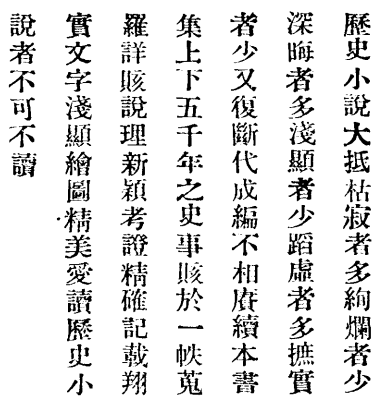 歷史小說大抵枯寂者多絢爛者少
深晦者多淺顯者少蹈虛者多摭實
者少又復斷代成編不相賡續本書
集上下五千年之史事賅於一帙蒐
羅詳賅說理新穎考證精確記載翔
實文字淺顯繪圖精美愛讀歷史小
說者不可不讀